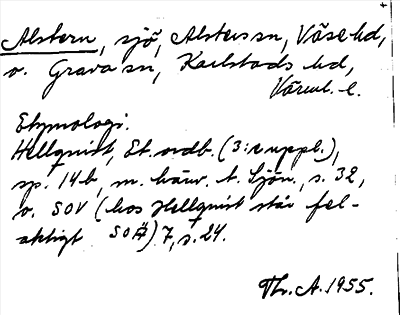 Alstern, sjö, Alsters sn, Väse hd,
o. Grava sn, Karlstads hd,
Värml. l.
Etymologi.
Hellquist, Et. ordb. (3:e uppl.),
sp. 14b, m. hänv. t. Sjön., s. 32,
o. SOV (hos Hellquist står fel-
aktigt SOÄ) 7, s. 24.
Th. A. 1955.